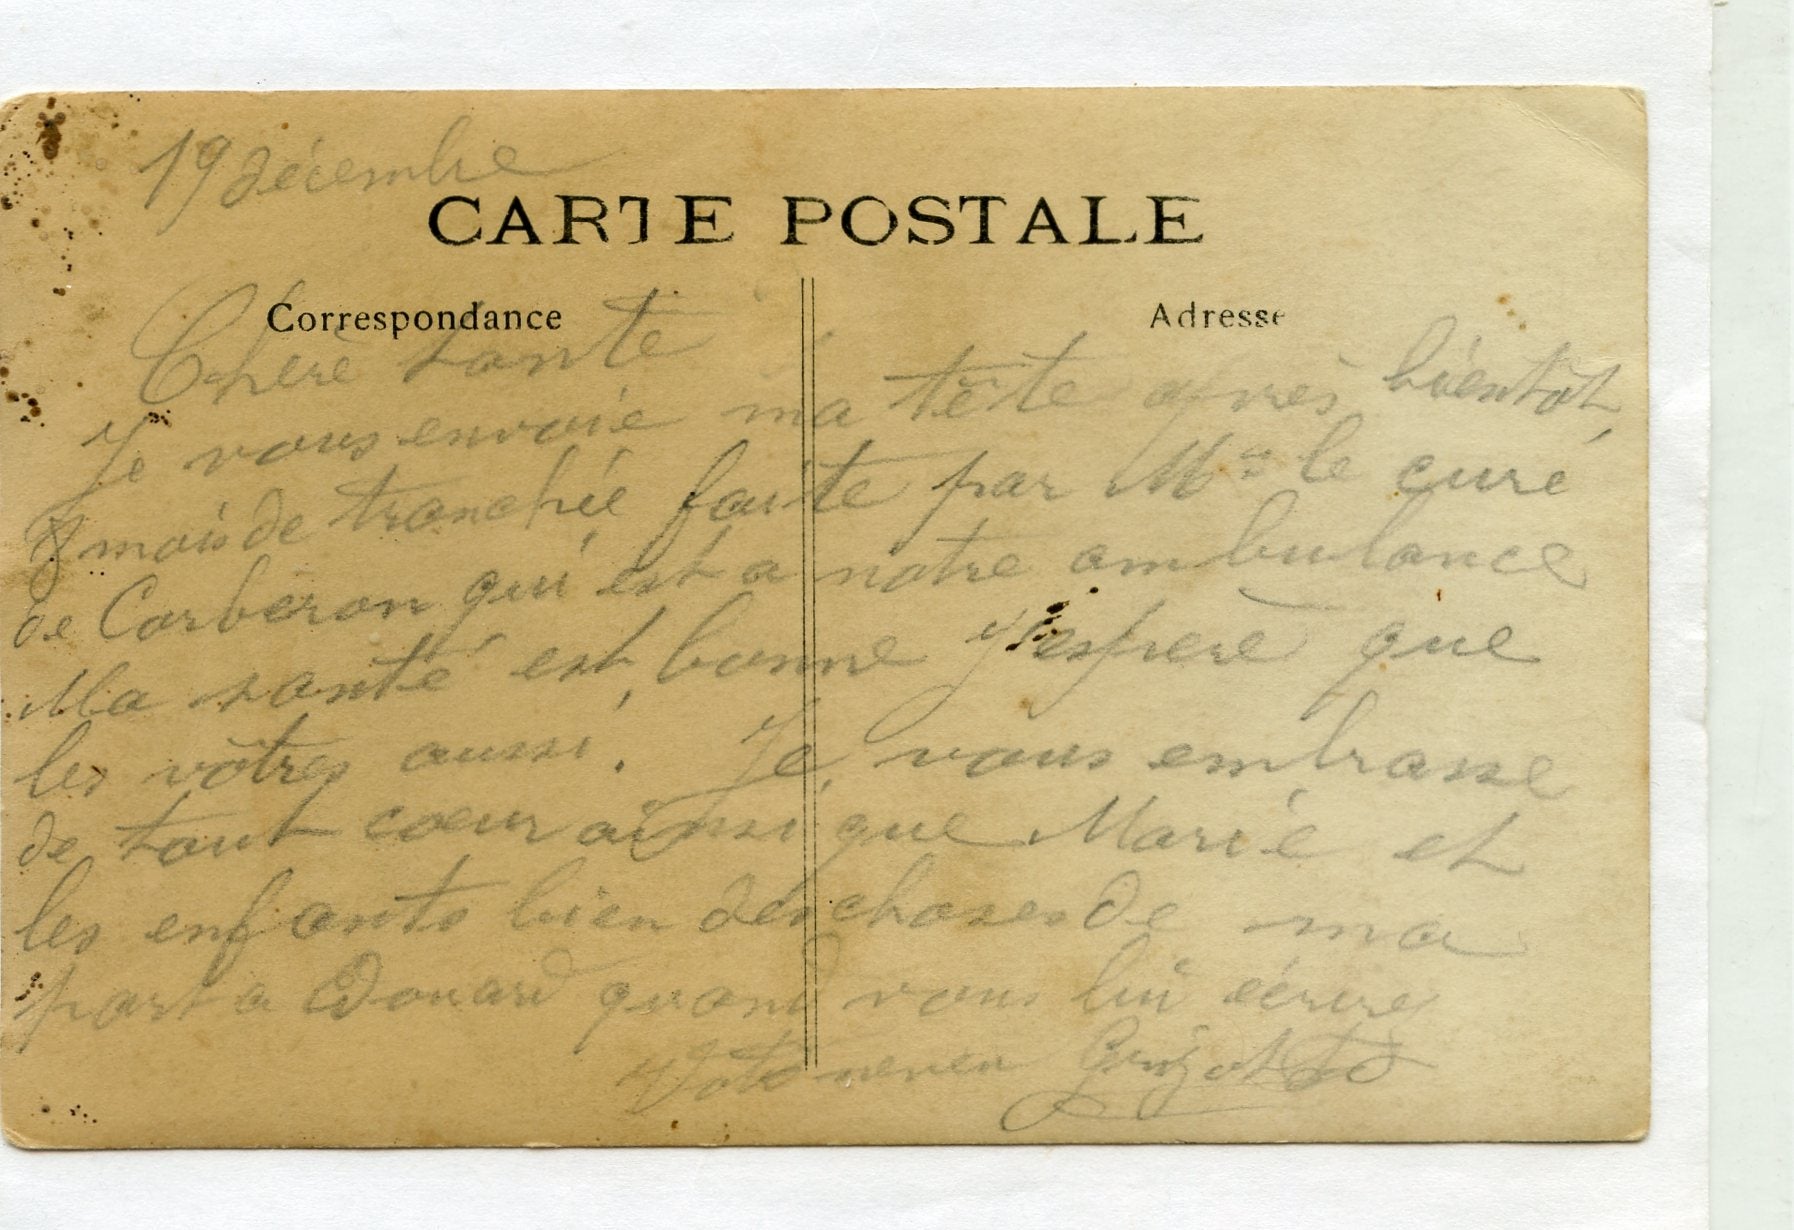 19 décembre
CARTE POSTALE
Correspondance
Adresse
Chère tante
Je vous envoie ma tête après bientôt,
mois de tranchée, faite par Mr le curé
de Corberon qui est a notre ambulance
Ma santé est bonne j'espère que
les vôtres aussi. Je vous embrasse
de tout coeur ainsi que Marie et
les enfants bien des choses de ma
part a Edouard quand vous lui écrirez
Vote neveu